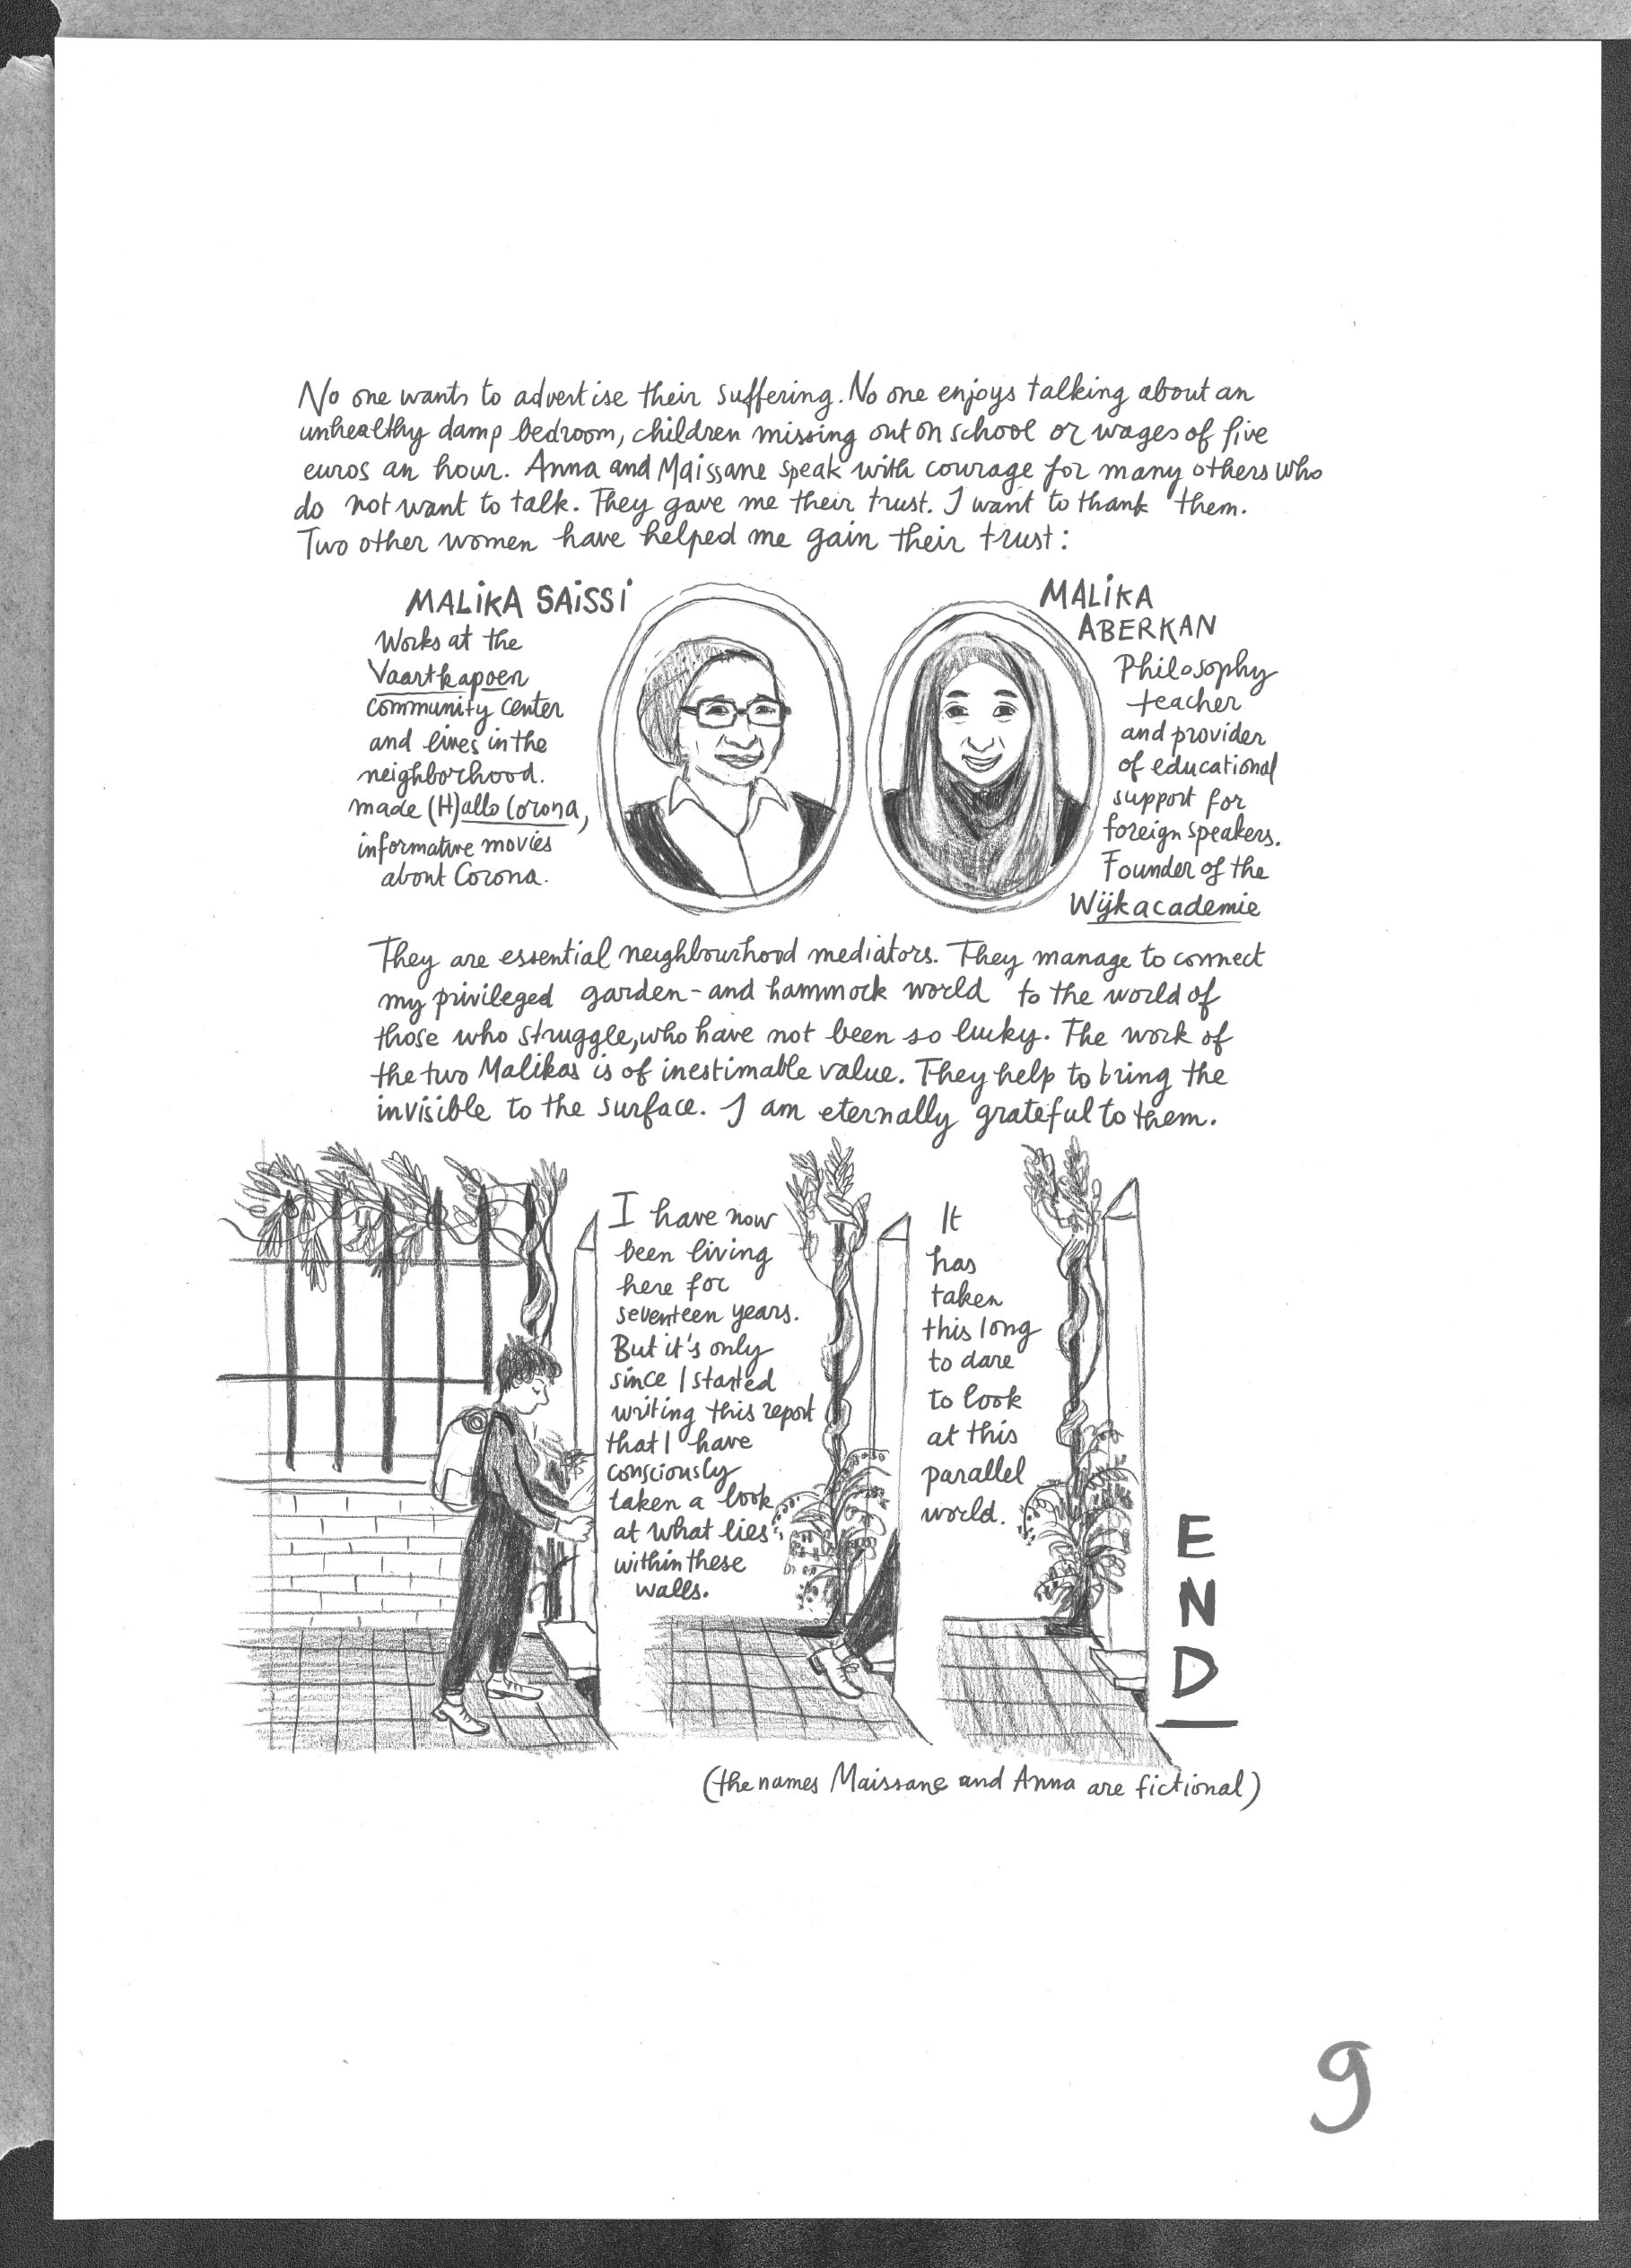 No one wants to advertise their suffering. No one enjoys talking about an
unhealthy damp bedroom, children missing out on school or wages of five
euros an hour. Anna and Maissane speak with courage for many others who
do not want to talk. They gave me their trust. I want to thank them.
Two other women have helped me gain their trust:
MALIKA SAISSI
Works at the
Vaartkapoen
community center
and lives in the
neighborhood.
made (H)allo Corona,
informative movies
about Corona.
MALIKA
ABERKAN
Philosophy
teacher
and provider
of educational
support for
foreign speakers.
Founder of the
Wijkacademie
They are essential neighbourhood mediators. They manage to connect
my privileged garden-and hammock world to the world of
those who struggle, who have not been so lucky. The work of
the two Malikas is of inestimable value. They help to bring the
invisible to the surface. I am eternally grateful to them.
I have now
been living
here for
seventeen years.
But it's only
since I started
writing this report
that I have
consciously
taken a look
at what lies
within these
walls.
It
has
taken
this long
to dare
to look
at this
parallel
world.
E
N
D
(the names Maissane and Anna are fictional)
9